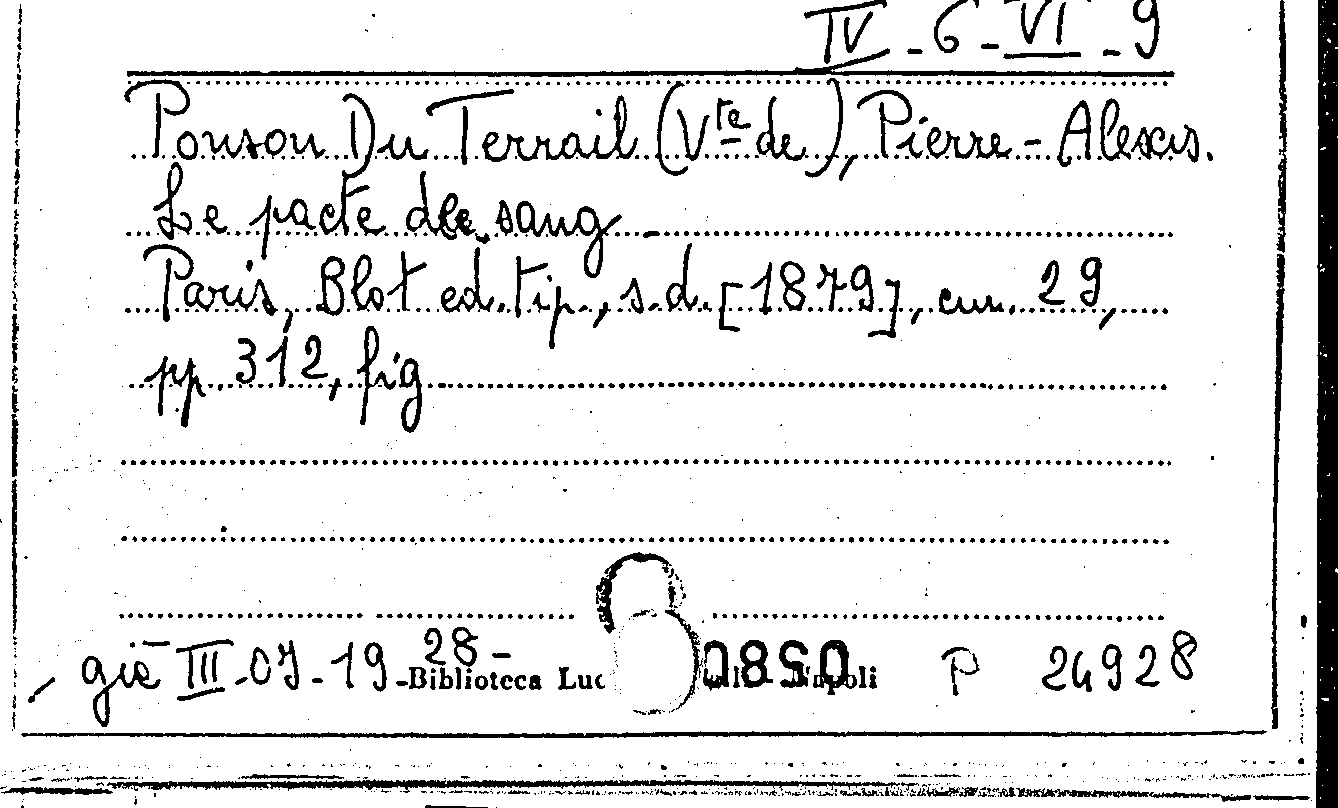 IV-6-VI-9
Ponson Du Terrail (Vte de), Pierre-Alexis.
Le pacte de sang
Paris, Blot ed. tip., s.d. [1879], cm. 29,
pp. 312, fig
già III-07-19-28- Biblioteca Napoli P 24928